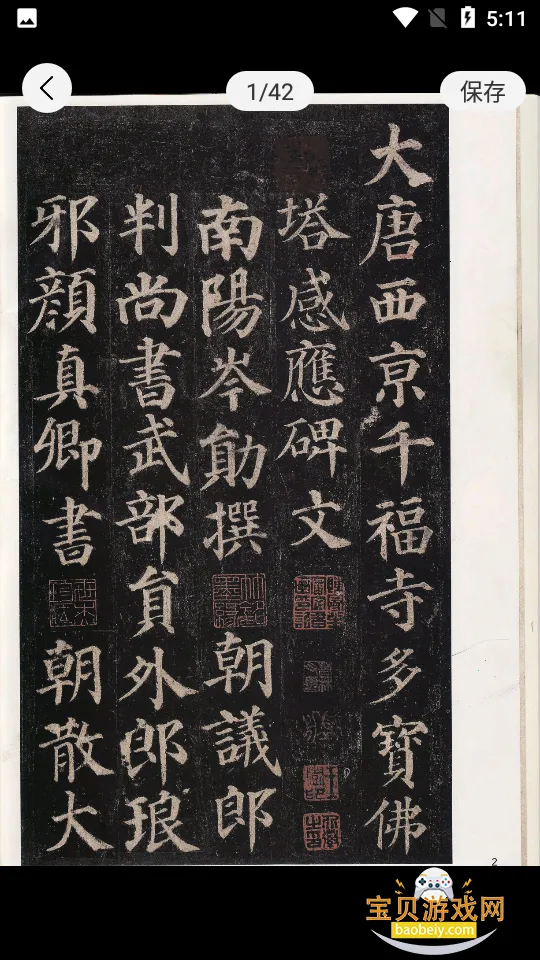 5:11
1/42
保存
大唐西京千福寺多寶佛
塔感應碑文
南陽岑勛撰朝議郎
判尚書武部貟外郎琅
邪顔真卿書朝散大
2
宝贝游戏网
baobeiy.com